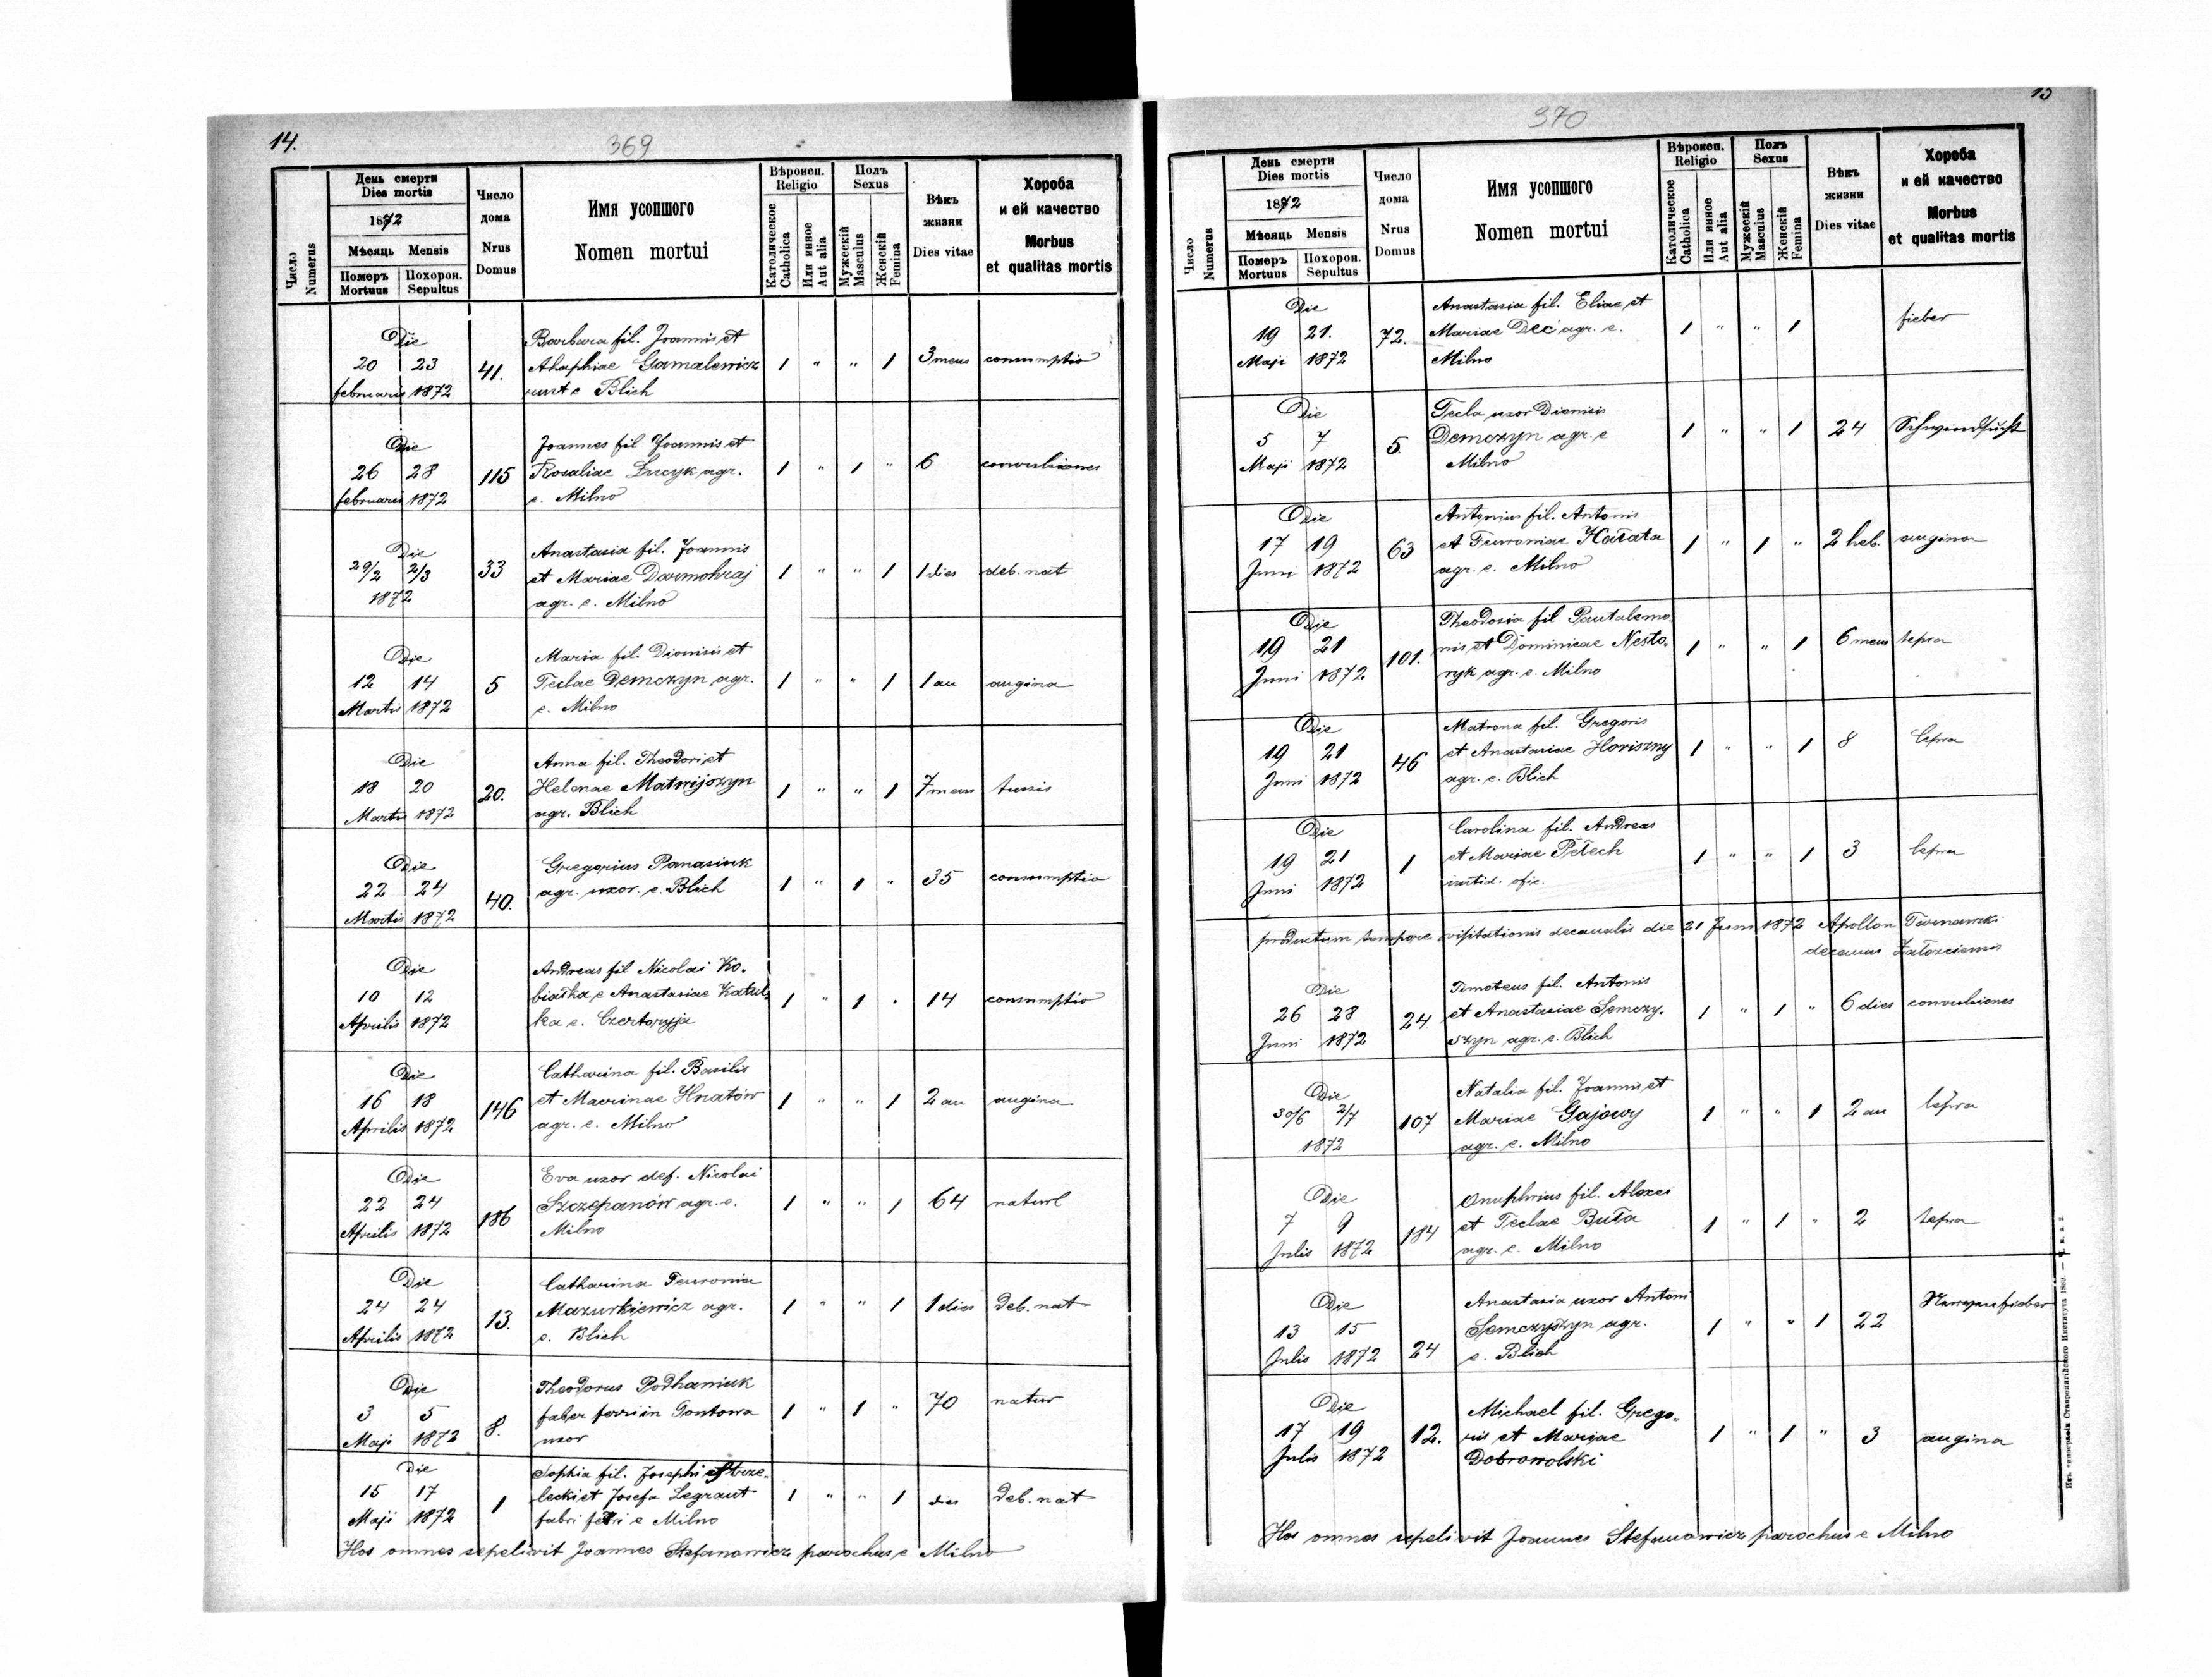 14.
369
Число Numerus
День смерти Dies mortis
1872
Мѣсяць Mensis
Померъ Mortuus
Похорон. Sepultus
Число дома Nrus Domus
Имя усопшого Nomen mortui
Вѣроисп. Religio
Католическое Catholica
Или инное Aut alia
Полъ Sexus
Мужескій Masculus
Женскій Femina
Вѣкъ жизни Dies vitae
Хороба и ей качество Morbus et qualitas mortis
Die Barbara fil. Joannis et
20 23 41. Ahaphiae Gamalewicz 1 " " 1 3 mens consumptio
februarii 1872 e Blich
Die Joannes fil Joannis et
26 28 115 Rosaliae agr. 1 " 1 " 6 convulsiones
februarii 1872 e. Milno
Die Anastasia fil. Joannis
29/2 2/3 33 et Mariae Darmohraj 1 " " 1 1 dies deb. nat
1872 agr. e. Milno
Die Maria fil. Dionisii et
12 14 5 Teclae Demczyn agr. 1 " " 1 1 an angina
Martii 1872 e. Milno
Die Anna fil. Theodori et
18 20 20. Helenae Matwijszyn 1 " " 1 7 mens tussis
Martii 1872 agr. Blich
Die Gregorius Panasiuk
22 24 40. agr. uxor. e. Blich 1 " 1 " 35 consumptio
Martii 1872
Die Andreas fil Nicolai Ko-
10 12 białka e Anastasiae Katul- 1 " 1 " 14 consumptio
Aprilis 1872 ka e. Czertoryja
Die Catharina fil. Basilii
16 18 146 et Macrinae Hnatów 1 " " 1 2 an angina
Aprilis 1872 agr. e. Milno
Die Eva uxor def. Nicolai
22 24 186 Szczepanów agr. e. 1 " " 1 64 naturl
Aprilis 1872 Milno
Die Catharina Feuronia
24 24 13. Mazurkiewicz agr. 1 " " 1 1 dies deb. nat
Aprilis 1872 e. Blich
Die Theodorus Podhaniuk
3 5 8. faber ferri in Gontowa 1 " 1 " 70 natur
Maji 1872 uxor
Die Sophia fil. Josephi Strze-
15 17 1 lecki et Josefa Legraut 1 " " 1 dies deb. nat
Maji 1872 fabri ferri e Milno
Hos omnes sepelivit Joannes Stefanowicz parochus e Milno
370
15
Число Numerus
День смерти Dies mortis
1872
Мѣсяць Mensis
Померъ Mortuus
Похорон. Sepultus
Число дома Nrus Domus
Имя усопшого Nomen mortui
Вѣроисп. Religio
Католическое Catholica
Или инное Aut alia
Полъ Sexus
Мужескій Masculus
Женскій Femina
Вѣкъ жизни Dies vitae
Хороба и ей качество Morbus et qualitas mortis
Die Anastasia fil. Eliae et fieber
19 21. 72. Mariae Deć agr. e. 1 " " 1
Maji 1872 Milno
Die Tecla uxor Dionisii
5 7 5. Demczyn agr. e 1 " " 1 24 Schwindsucht
Maji 1872 Milno
Die Antonius fil. Antonii
17 19 63 et Feuroniae Harata 1 " 1 " 2 heb. angina
Juni 1872 agr. e. Milno
Die Theodosia fil Pantalemo-
19 21 101. nis et Dominicae Nesto- 1 " " 1 6 mens lepra
Juni 1872 ryk agr. e. Milno
Die Matrona fil. Gregorii
19 21 46 et Anastasiae Horiszny 1 " " 1 8 lepra
Juni 1872 agr. e. Blich
Die Carolina fil. Andreas
19 21 1 et Mariae Petech 1 " " 1 3 lepra
Juni 1872 ofic.
productum tempore visitationis decanalis die 21 Juni 1872 Apollon Tarnawski
decanus Załozciensis
Die Timoteus fil. Antonii
26 28 24 et Anastasiae Semczy- 1 " 1 " 6 dies convulsiones
Juni 1872 szyn agr. e. Blich
Die Natalia fil. Joannis et
30/6 2/7 107 Mariae Gajowy 1 " " 1 2 an lepra
1872 agr. e. Milno
Die Onuphrius fil. Alexei
7 9 184 et Teclae Buła 1 " 1 " 2 lepra
Julii 1872 agr. e. Milno
Die Anastasia uxor Antoni
13 15 24 Semczyszyn agr. 1 " " 1 22
Julii 1872 e. Blich
Die Michael fil. Grego-
17 19 12. rii et Mariae 1 " 1 " 3 angina
Julii 1872 Dobrowolski
Hos omnes sepelivit Joannes Stefanowicz parochus e Milno
Изъ типографіи Ставропигійского Института 1869.